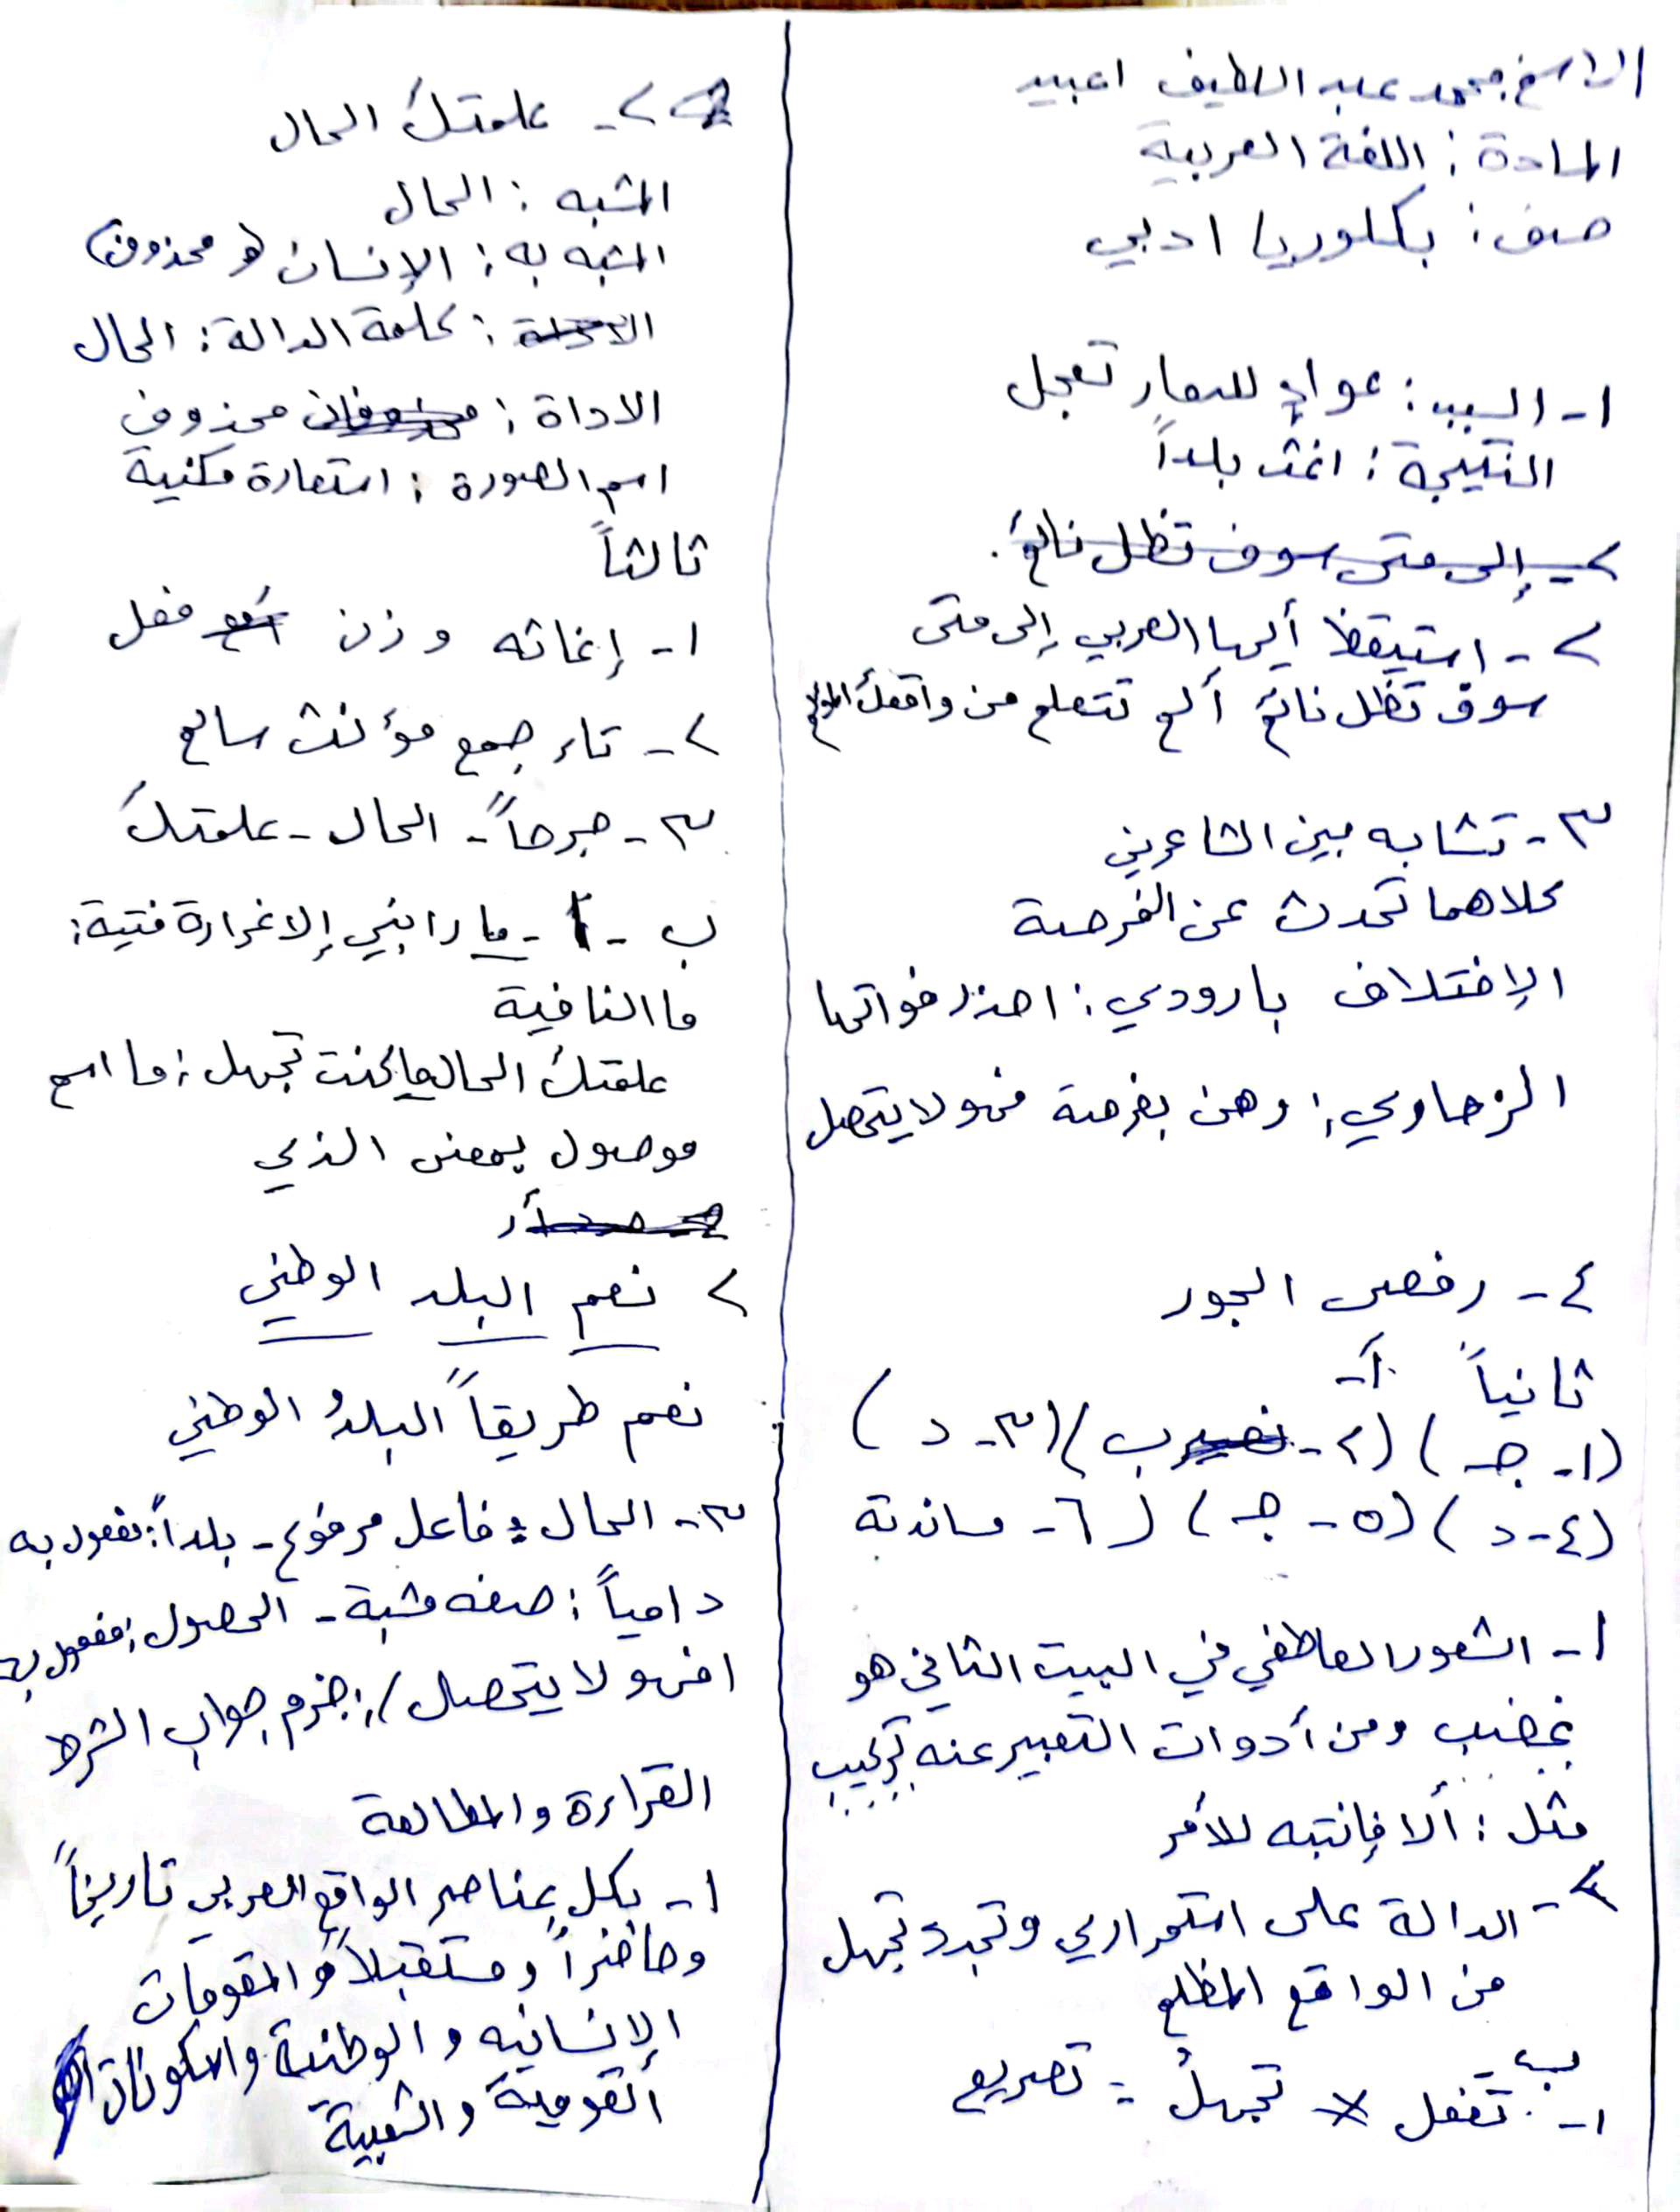 الاسم: محمد عبد اللطيف اعبيد
المادة: اللغة العربية
صف: بكلوريا ادبي
١- السبب: عوادٍ للدمار تعجل
النتيجة: اغث بلداً
٢- إلى متى سوف تظل نائم.
٢- استيقظ أيها العربي إلى متى
سوف تظل نائم ألم تتعلم من واقعك المؤلم
٣- تشابه بين الشاعرين
كلاهما تحدث عن الفرصة
الإختلاف بارودي: احذر فواتها
الزهاوي: وهن بفرصة فهو لا يتحصل
٤- رفض الجور
ثانياً أ-
(١- جـ) (٢- ب) (٣- د)
(٤- د) (٥- جـ) (٦- مساندته
١- الشعور العاطفي في البيت الثاني هو
غضب ومن أدوات التعبير عنه تركيب
مثل: ألا فانتبه للأمر
٢- الدالة على استمراري وتجدد تجهل
من الواقع المظلم
ب-
١- تغفل × تجهلُ = تصريع
٢- علمتك الحال
المشبه: الحال
المشبه به: الإنسان (محذوف)
: كلمة الدالة: الحال
الاداة: محذوف
اسم الصورة: استعارة مكنية
ثالثاً
١- إغاثه وزن فعل
٢- تاء جمع مؤنث سالم
٣- جرحاً - الحال - علمتك
ب - ١ - ما رابني إلا غرارة فتية:
ما النافية
علمتك الحال ما كنت تجهل: ما اسم
موصول بمعنى الذي
٢ نعم البلد الوطني
نعم طريقاً البلدُ الوطني
٣- الحال: فاعل مرفوع - بلداً: مفعول به
دامياً: صفه مشبة - الحصول: مفعول به
(فهو لا يتحصل): جزم جواب الشرط
القراءة والمطالعة
١- بكل عناصر الواقع العربي تاريخاً
وحاضراً ومستقبلاً والمقومات
الإنسانيه والوطنية والمكونات
القومية والشعبية